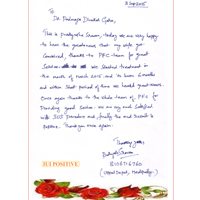 To
Dr. Padmaja Divakar
This is Pradyusha Sharon, today we are very happy
to have the good news that my wife got
Conceived, thanks to PFC team for great
Service. We started treatment in
the month of March 2015 and its been 6 months
and within short period of time we heard great news.
Once again thanks to the whole team of PFC for
Providing good service. We are very much satisfied
with ICSI procedure and finally the end result is
Positive. Thank you once again.
Thanking you,
8106716760
ICSI POSITIVE